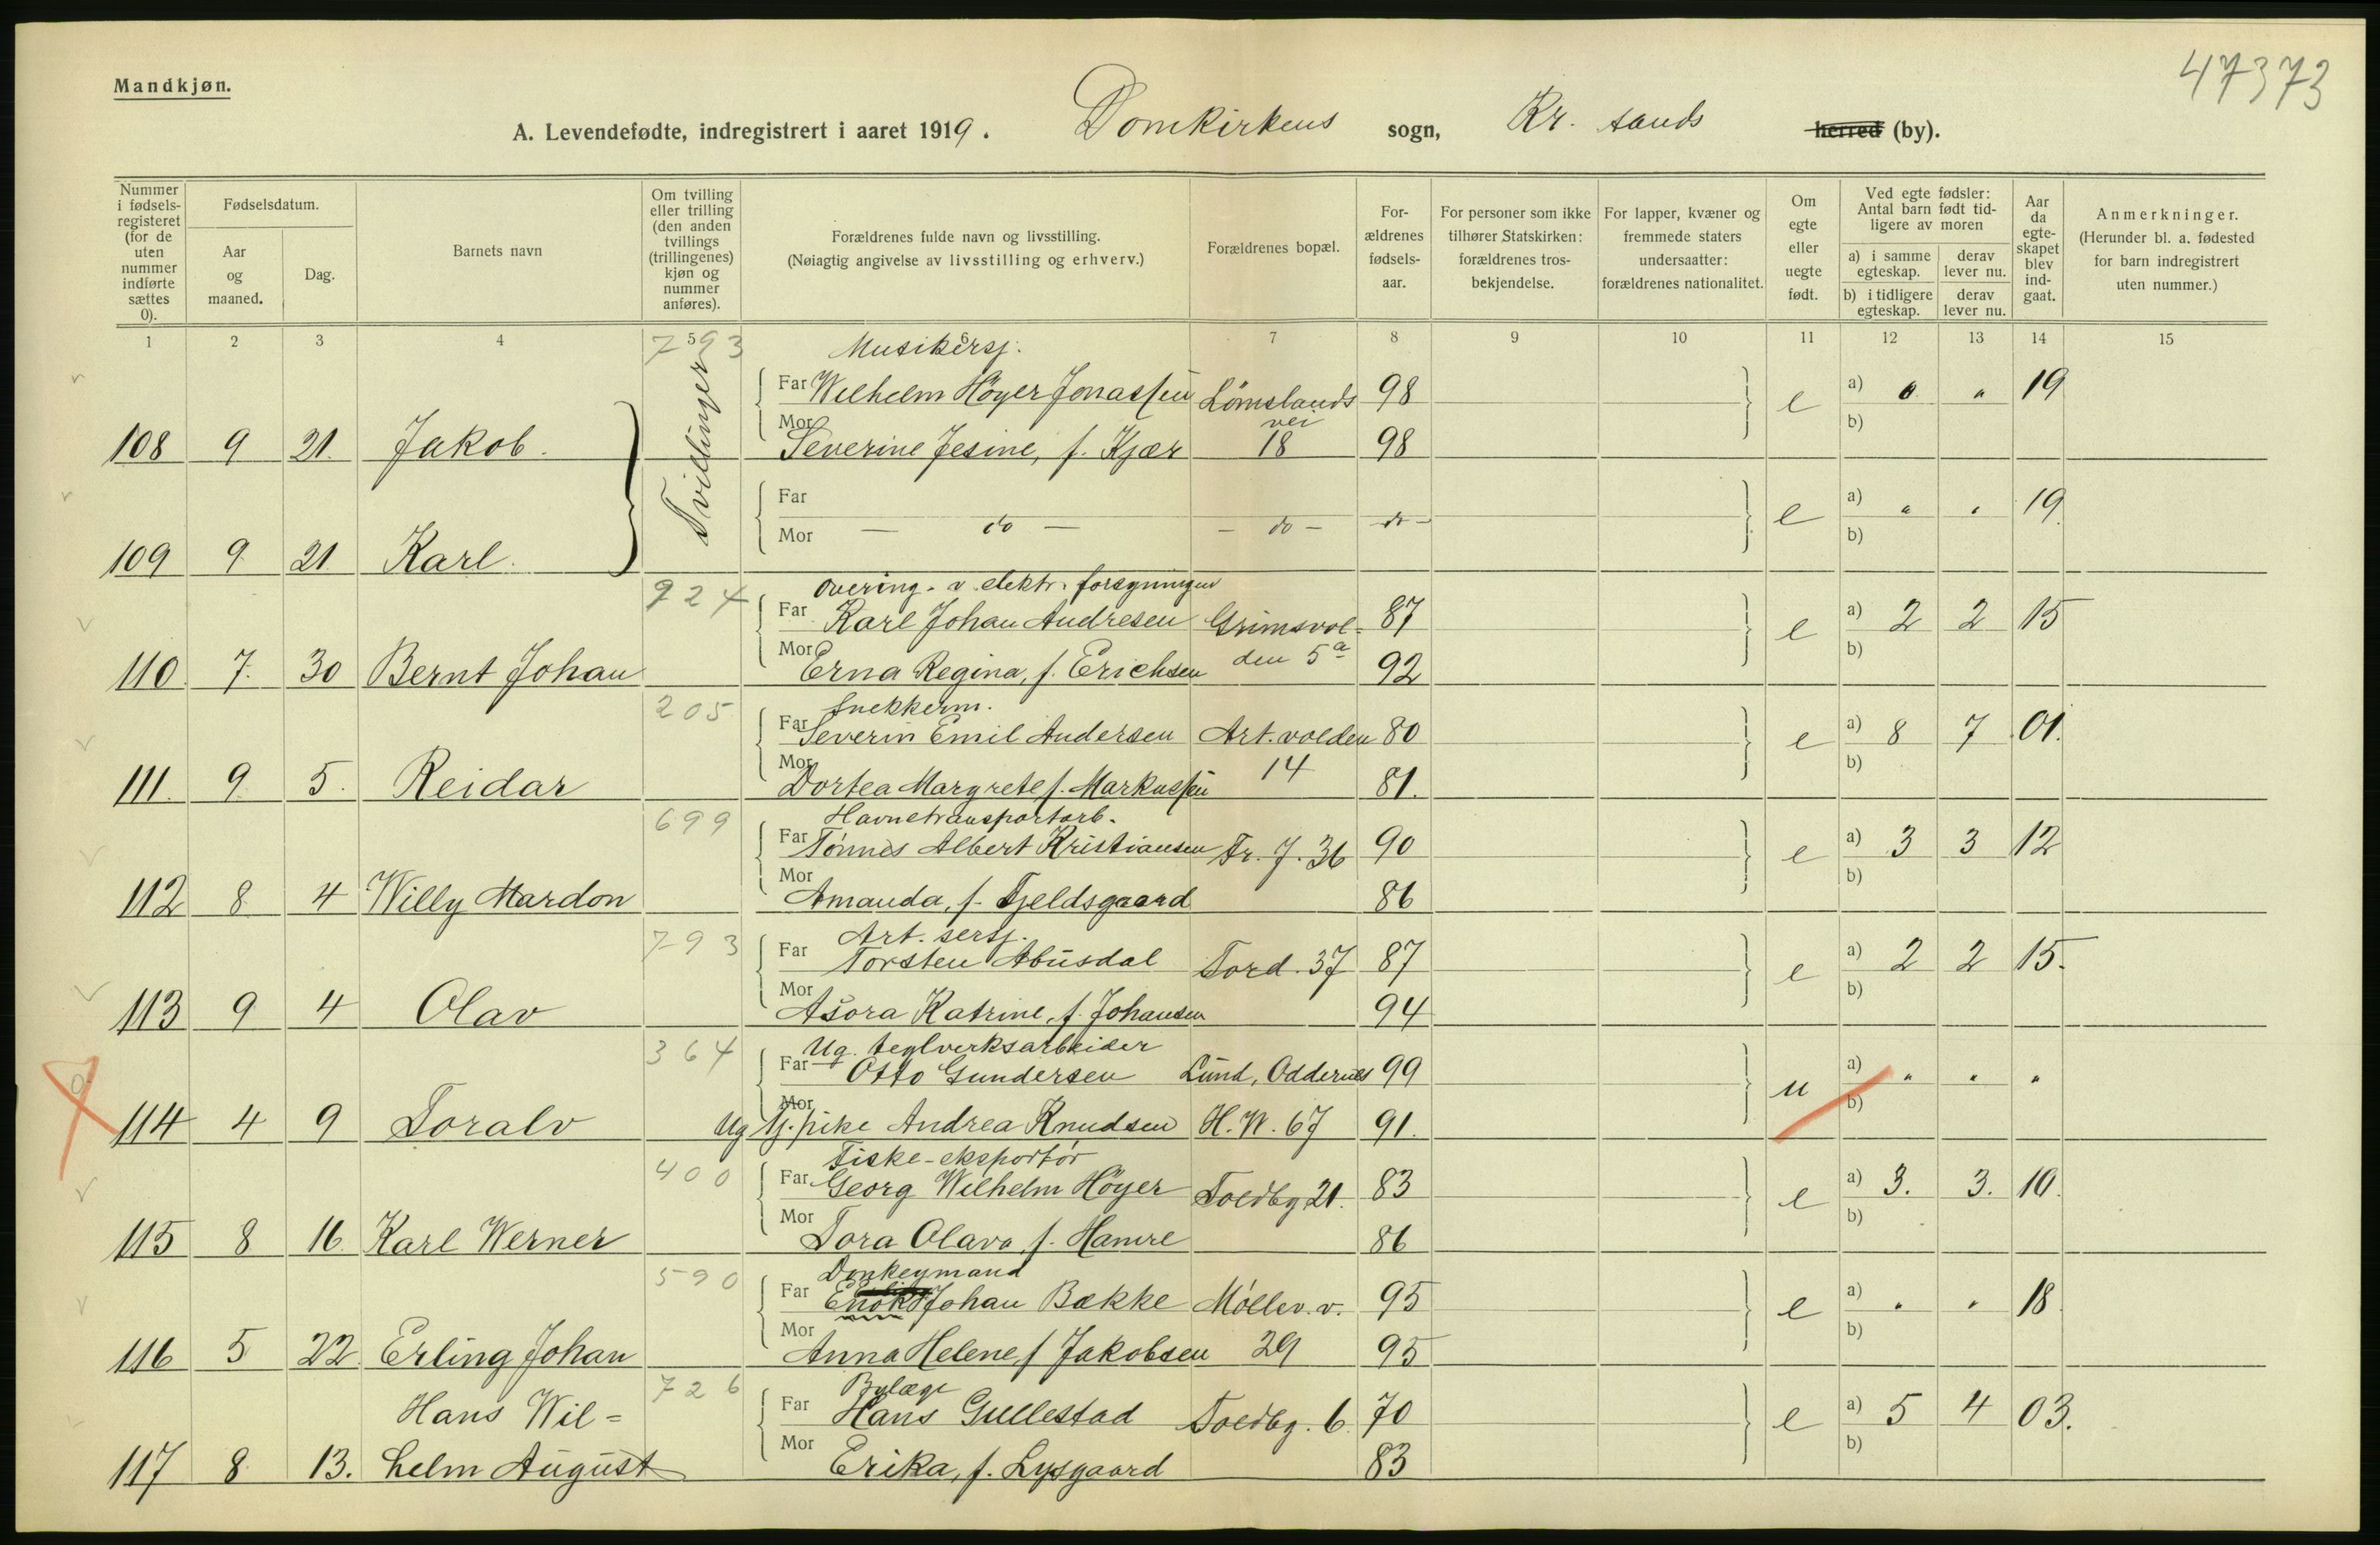 47373
Mandkjøn.
A. Levendefødte, indregistrert i aaret 1919. Domkirkens sogn, Kr. sands herred (by).
Nummer i fødselsregisteret (for de uten nummer indførte sættes 0).
Fødselsdatum.
Aar og maaned.
Dag.
Barnets navn
Om tvilling eller trilling (den anden tvillings (trillingenes) kjøn og nummer anføres).
Forældrenes fulde navn og livsstilling.
(Nøiagtig angivelse av livsstilling og erhverv.)
Forældrenes bopæl.
Forældrenes fødselsaar.
For personer som ikke tilhører Statskirken: forældrenes trosbekjendelse.
For lapper, kvæner og fremmede staters undersaatter: forældrenes nationalitet.
Om egte eller uegte født.
Ved egte fødsler: Antal barn født tidligere av moren
a) i samme egteskap.
derav lever nu.
b) i tidligere egteskap.
derav lever nu.
Aar da egteskapet blev indgaat.
Anmerkninger.
(Herunder bl. a. fødested for barn indregistrert uten nummer.)
1 2 3 4 5 7 8 9 10 11 12 13 14 15
793 Musikersj.
Far Wilhelm Höyer Jonassen Lömslands 98 e a) 0 " 19
vei b)
108 9 21. Jakob. Tvillinger Mor Severine Jesine, f. Kjær 18 98
Far e a) " " 19
Mor — do — — do — — do — b)
109 9 21 Karl.
924 Overing. v. elektr. forsyningen
Far Karl Johan Andresen Grimsvol- 87 e a) 2 2 15
110. 7. 30 Bernt Johan Mor Erna Regina, f. Erichsen den 5a 92 b)
205 Snekkerm.
Far Severin Emil Andersen Art. volden 80 e a) 8 7 01.
111. 9 5. Reidar Mor Dortea Margrete f. Markussen 14 81. b)
699 Havnetransportarb.
Far Tönnes Albert Kristiansen Fr. 7. 36 90 e a) 3 3 12
112 8 4 Willy Mardon Mor Amanda, f. Fjeldsgaard 86 b)
793 Art. sersj.
Far Torsten Abusdal Tord. 37 87 e a) 2 2 15.
113 9 4 Olav Mor Asora Katrine, f. Johansen 94 b)
364 Ug. teglverksarbeider
Far Otto Gundersen Lund, Oddernes 99 u a) " " "
114 4 9 Toralv Mor Ug tj. pike Andrea Knudsen H. W. 67 91. b)
400 Fiske-eksportör
Far Georg Wilhelm Höyer Toldbg 21. 83 e a) 3. 3. 10.
115 8 16. Karl Werner Mor Tora Olava, f. Hamre 86 b)
590 Donkeymand
Far Enok Johan Bakke Möllev. v. 95 e a) " " 18
116 5 22 Erling Johan Mor Anna Helene, f Jakobsen 29 95 b)
726 Bylæge
Hans Wil= Far Hans Gullestad Toldbg. 6. 70 e a) 5 4 03.
117 8 13. helm August Mor Erika, f. Lysgaard 83 b)